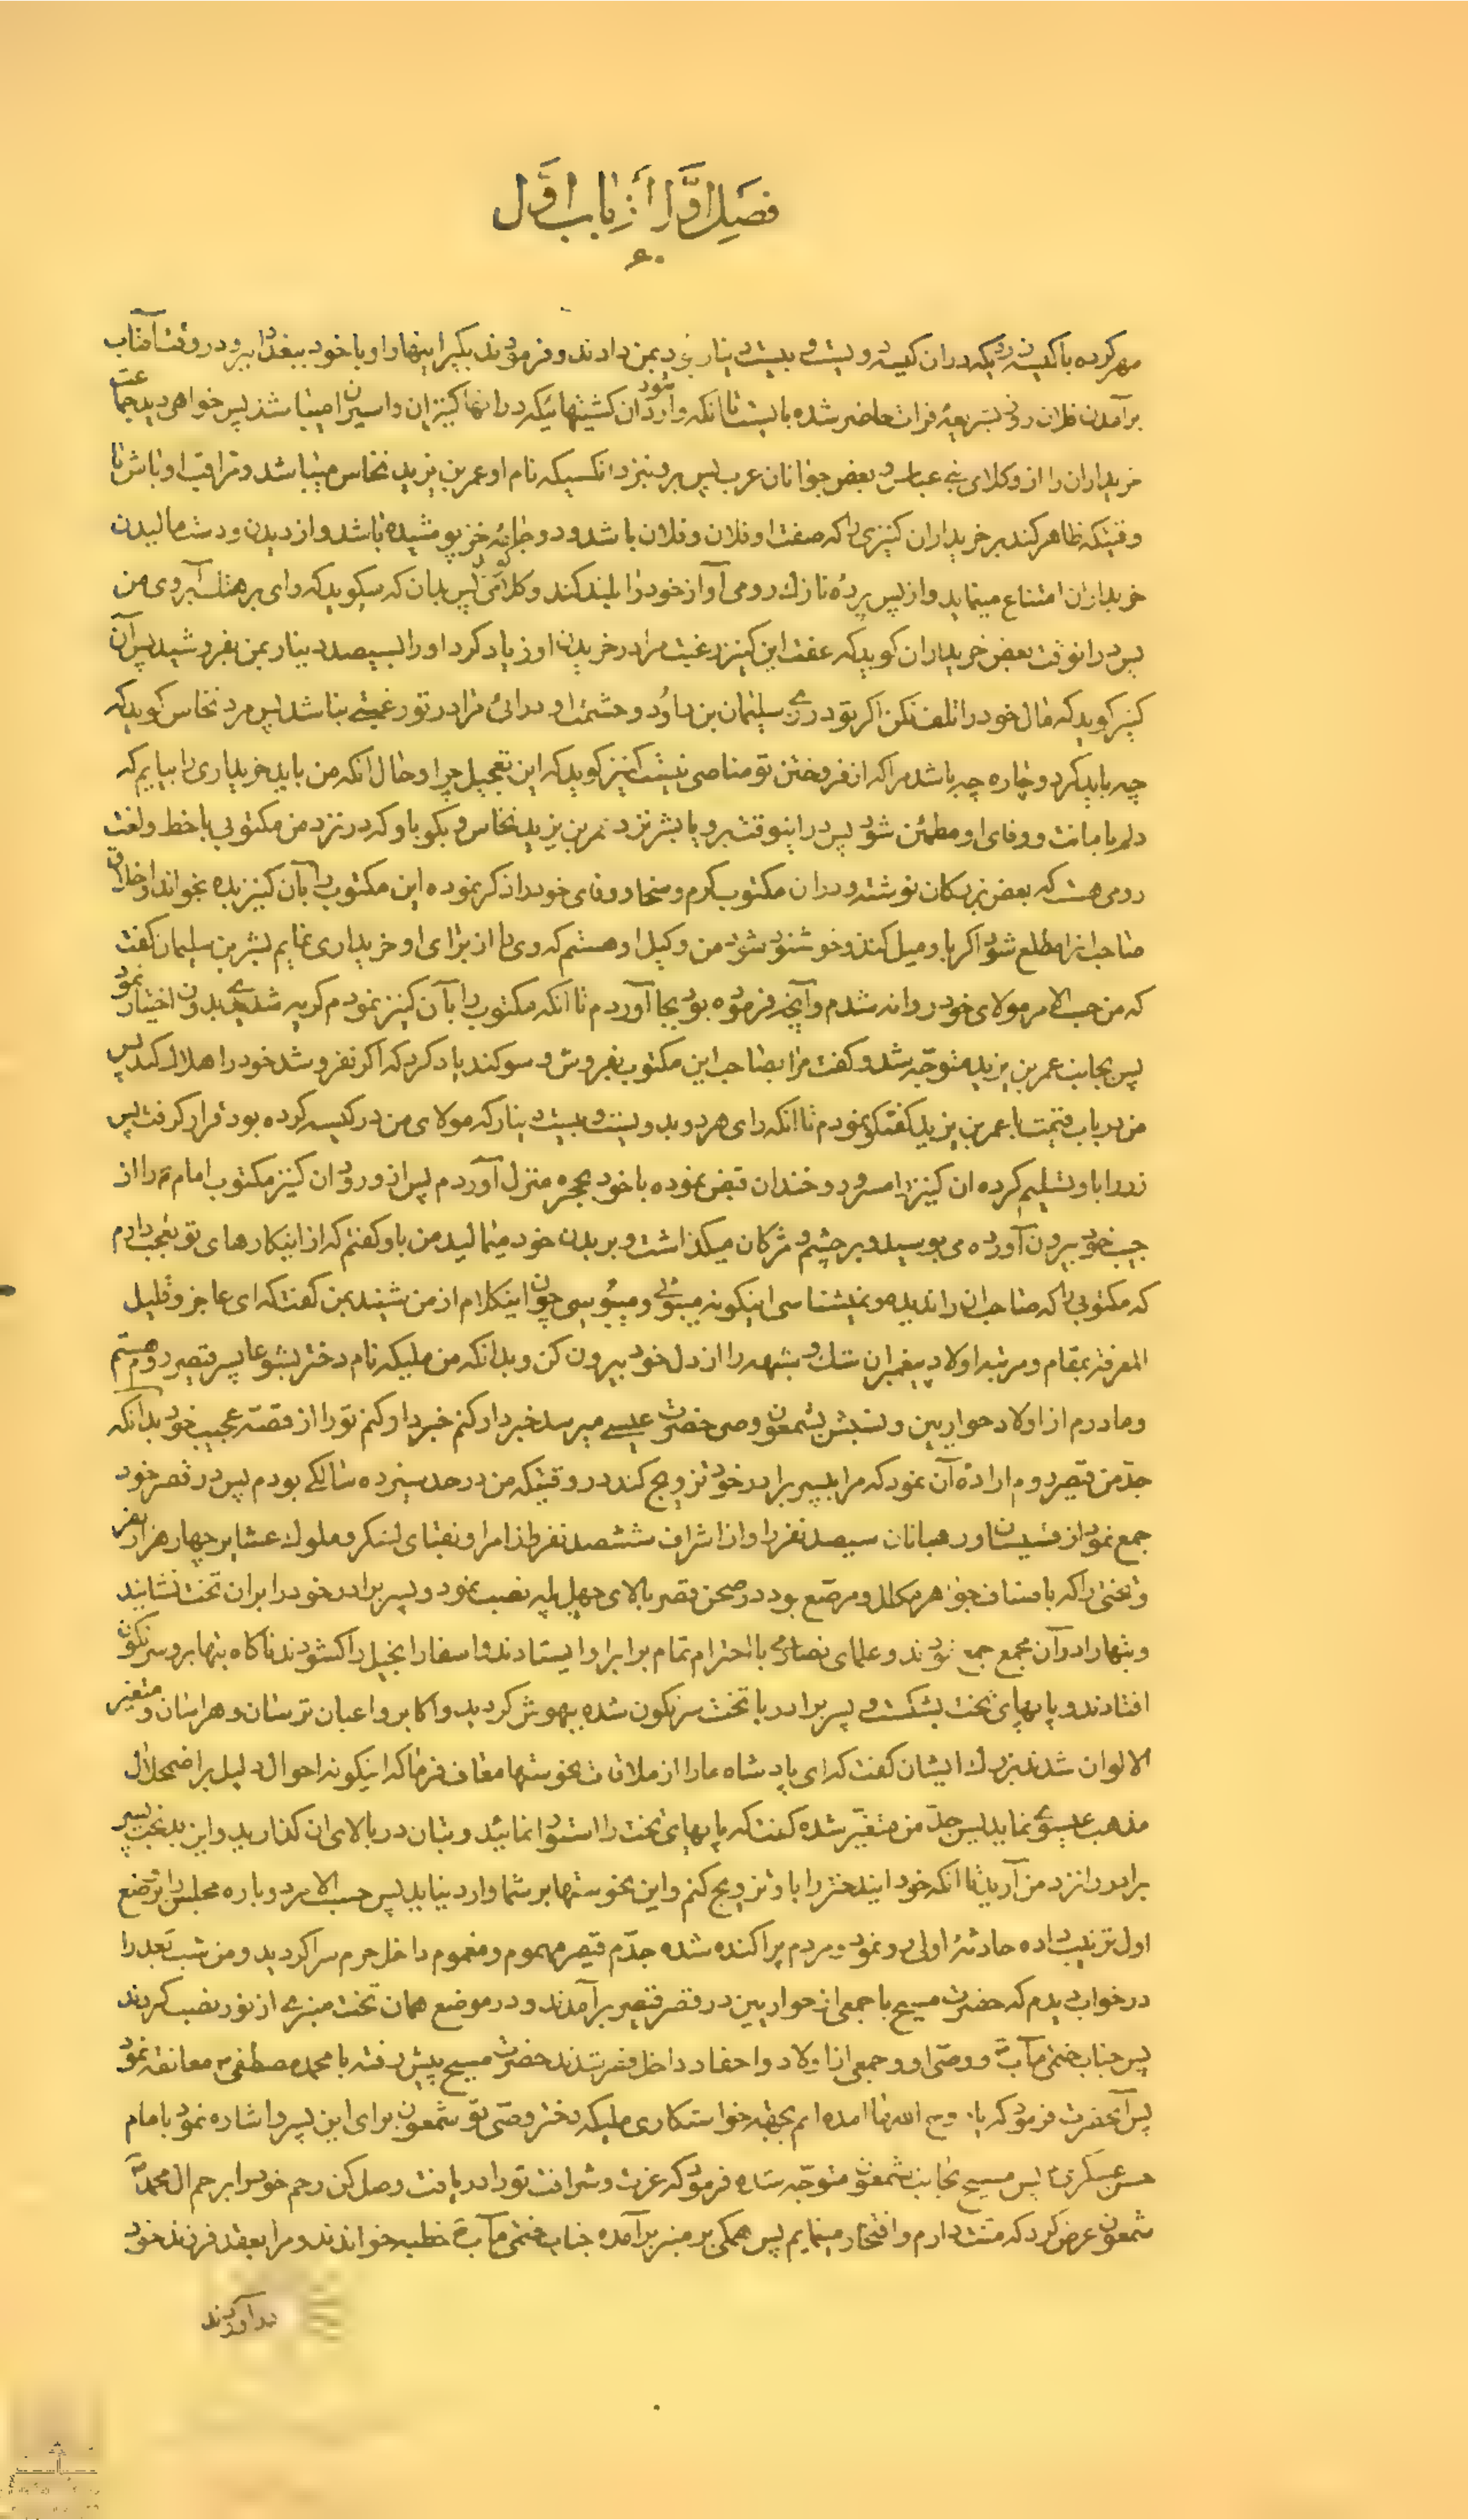 فصل اول از باب اول
۶۰
مهر کرده با کیسه زردیکه در ان کیسه دویست و بیست دینار بود بمن دادند و فرمودند بگیر اینها را و با خود ببغداد ببر و در وقت آفتاب
برآمدن فلان روز بشریعهٔ فرات حاضر شده بایست تا انکه وارد شود ان کشتیهائیکه در انها کنیزان و اسیران میباشند پس خواهی دید جماعت
خریداران را از وکلای بنی عباس و بعض جوانان عرب پس برو نیزد انکسیکه نام او عمر بن یزید نخاس میباشد و مراقب او باش تا
وقتیکه ظاهر کند بر خریداران کنیزی را که صفت او فلان و فلان باشد و دو جامهٔ خز پوشیده باشد و از دیدن و دست مالیدن
خریداران امتناع مینماید و از پس پردهٔ نازک رومی آواز خود را بلند کند و کلام رومی گوید پس بدان که میگوید که وای بر هتک آبروی من
پس درانوقت بعض خریداران گوید که عفت این کنیز رغبت مرا در خریدن او زیاد کرد او را بسیصد دینار بمن بفروشید پس آن
کنیز گوید که مال خود را تلف نکن اگر تو در زی سلیمان بن داود و حشمت او درائی مرا در تو رغبتی نباشد پس مرد نخاس گوید که
چه باید کرد و چاره چه باشد مرا که از فروختن تو مناصی نیست کنیز گوید که این تعجیل چرا و حال انکه من باید خریداری را بیابم که
دلم بامانت و وفای او مطمئن شود پس دراینوقت برو یا بشر نزد عمر بن یزید نخاس و بگو باو که در نزد من مکتوبی با خط و لغت
رومی هست که بعض بزرگان نوشته و در ان مکتوب کرم و سخا و وفای خود را ذکر نموده این مکتوب را بآن کنیز بده بخواند و اخلاق
صاحب انرا مطلع شود اگر باو میل کند و خوشنود شود من وکیل او هستم که وی را از برای او خریداری نمایم بشر بن سلیمان گفت
که من حسب الامر مولای خود روانه شدم و آنچه فرموده بود بجا آوردم تا انکه مکتوب را بآن کنیز نمودم گریه شدید بدون اختیار نمود
پس بجانب عمر بن یزید متوجّه شد و گفت مرا بصاحب این مکتوب بفروش و سوگند یاد کرد که اگر نفروشد خود را هلاک کند پس
من در باب قیمت با عمر بن یزید گفتگو نمودم تا انکه رای هر دو بدویست و بیست دینار که مولای من در کیسه کرده بود قرار گرفت پس
زر را باو تسلیم کرده ان کنیز را مسرور و خندان قبض نموده با خود بحجره منزل آوردم پس از ورود ان کنیز مکتوب امام را از
جیب خود بیرون آورده می بوسید و بر چشم و مژگان میگذاشت و بر بدن خود میمالید من باو گفتم که از اینکارهای تو تعجب دارم
که مکتوبی را که صاحب ان را ندیده و نمیشناسی اینگونه میبوئی و میبوسی چون اینکلام از من شنید بمن گفت که ای عاجز و قلیل
المعرفة بمقام و مرتبه اولاد پیغمبران شک و شبهه را از دل خود بیرون کن و بدانکه من ملیکه نام دختر یشوعا پسر قیصر روم هستم
و مادرم از اولاد حواریین و نسبش بشمعون وصی حضرت عیسی میرسد خبردار کنم خبردار کنم تو را از قصّه عجیب خود بدانکه
جدّ من قیصر روم ارادهٔ آن نمود که مرا بپسر برادر خود تزویج کند در وقتیکه من در حد سیزده سالگی بودم پس در قصر خود
جمع نمود از قسّیسان و رهبانان سیصد نفر را و از اشراف ششصد نفر و از امرا و نقبای لشکر و ملوک عشایر چهار هزار نفر
و تختی را که باصناف جواهر مکلل و مرصّع بود در صحن قصر بالای چهل پله نصب نمود و پسر برادر خود را بر ان تخت نشانید
و بتها را درآن مجمع جمع نمودند و علمای نصاری با احترام تمام برابر او ایستادند و اسفار انجیل را گشودند ناگاه بتها برو سرنگون
افتادند و پایهای تخت بشکست و پسر برادر با تخت سرنگون شده بیهوش گردید و اکابر و اعیان ترسان و هراسان و متغیر
الالوان شدند بزرگ ایشان گفت که ای پادشاه ما را از ملاقات نحوستها معاف فرما که اینگونه احوال دلیل بر اضمحلال
مذهب عیسوی نماید پس جدّ من متغیّر شده گفت که پایهای تخت را استوار نمائید و بتان در بالای ان گذارید و این بدبخت پسر
برادر را نزد من آرید تا انکه خود ایندختر را باو تزویج کنم و این نحوستها بر شما وارد نیاید پس حسب الامر دوباره مجلس را بوضع
اول ترتیب داده حادثهٔ اولی رو نمود و مردم پراکنده شده جدّم قیصر مهموم و مغموم داخل حرم سرا گردید و من شب بعد را
در خواب دیدم که حضرت مسیح با جمعی از حواریین در قصر قیصر برآمدند و در موضع همان تخت منبری از نور نصب کردند
پس جناب ختمی مآب و وصّی او و جمعی از اولاد و احفاد داخل قصر شدند حضرت مسیح پیش رفته با محمد مصطفی معانقه نمود
پس آنحضرت فرمود که یا روح الله ما امده ایم بجهة خواستکاری ملیکه دختر وصّی تو شمعون برای این پسر و اشاره نمود بامام
حسن عسکری پس مسیح بجانب شمعون متوجّه شده فرمود که عزت و شرافت تو را دریافت وصل کن رحم خود را برحم ال محمد
شمعون عرض کرد که منّت دارم و افتخار مینمایم پس همگی بر منبر برآمده جناب ختمی مآب خطبه خواندند و مرا بعقد فرزند خود
درآوردند